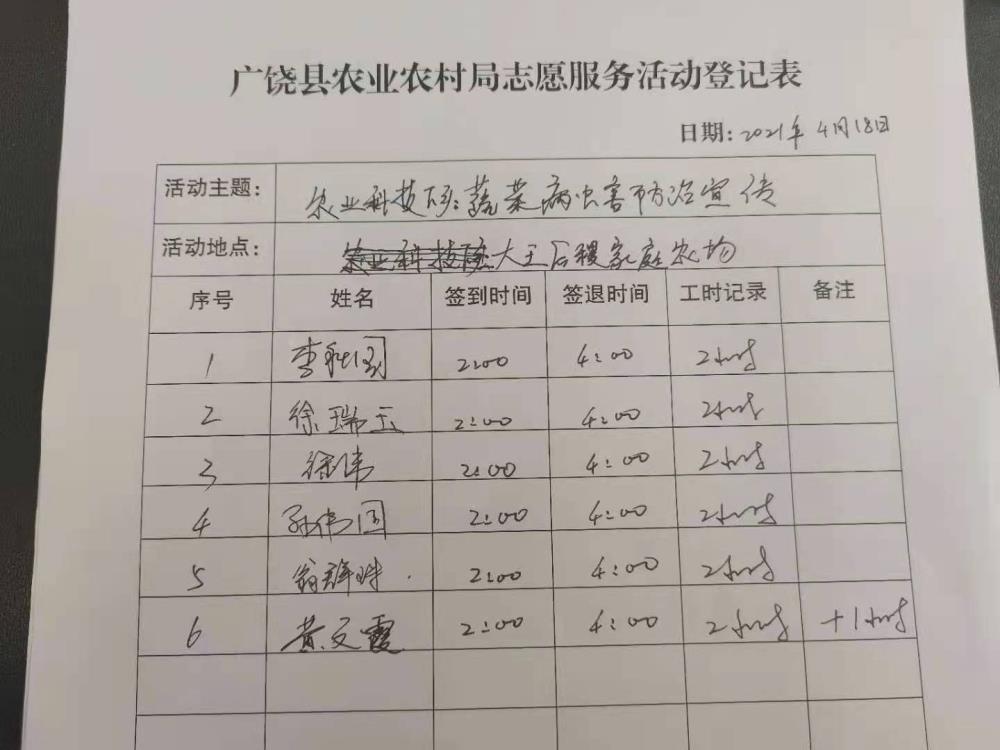 广饶县农业农村局志愿服务活动登记表
日期：2021年 4月18日
活动主题： 农业科技下乡：蔬菜病虫害防治宣传
活动地点： 农业科技 大王后稷家庭农场
序号 姓名 签到时间 签退时间 工时记录 备注
1 李 国 2:00 4:00 2小时
2 徐瑞玉 2:00 4:00 2小时
3 徐伟 2:00 4:00 2小时
4 孙伟国 2:00 4:00 2小时
5 翁 2:00 4:00 2小时
6 黄文霞 2:00 4:00 2小时 +1小时